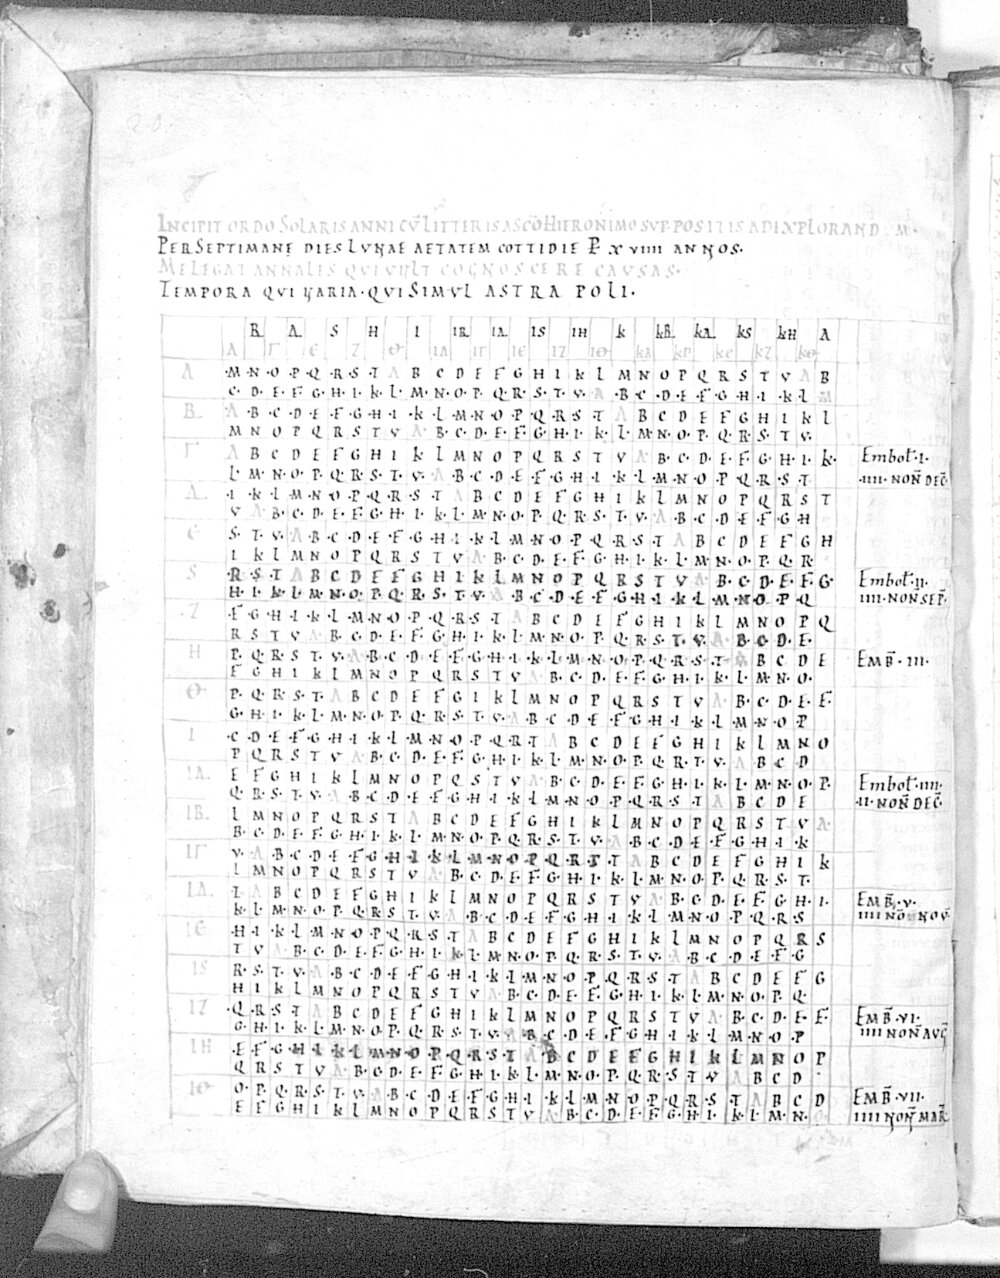 INCIPIT ORDO SOLARIS ANNI CŪ LITTERIS A SCŌ HIERONIMO SUPPOSITIS AD EXPLORAND
PER SEPTIMANE DIES LUNAE AETATEM COTTIDIE P XVIIII ANNOS·
ME LEGAT ANNALES QUI VULT COGNOSCERE CAUSAS·
TEMPORA QUI UARIA· QUI SIMUL ASTRA POLI·
B Δ S H I IB IΔ IS IH K KB KΔ KS KH Λ
Α Γ Є Z Θ IA IΓ IЄ IZ IΘ KA KΓ KЄ KZ KΘ
A ·M· N· O ·P· Q ·R· S· T A B C D E F G H I K L M N O P Q R S T V A B
C· D· E· F· G· H· I· K· L· M· N· O· P· Q· R· S· T· V· A ·B· C ·D· E· F· G· H· I· K L
B A ·B· C ·D· E ·F· G· H· I ·K· L· M· N· O· P· Q· R· S T A B C D E F G H I K L
M N O P Q R S T V A ·B· C· D· E· F· G· H· I· K· L· M· N· O· P· Q· R· S· T V·
Γ A B C D E F G H I K L M N O P Q R S T V A· B· C· D· E· F· G· H· I· K· Embol·I·
L· M· N· O· P· Q· R· S· T· V· A ·B· C· D· E· F· G· H· I K· L· M· N· O P· Q· R· S T ·IIII· NON DEC
Δ ·I ·K· L M· N· O ·P· Q· R· S· T A B C D E F G H I K L M N O P Q R S T
V A· B· C· D· E· F· G· H· I· K· L· M· N· O· P· Q· R· S· T· V· A· B· C· D· E F· G H
Є S· T· V· A· B· C· D· E· F· G· H· I· K· L· M· N· O· P· Q· R· S· T A B C D E F G H
I K L M N O P Q R S T V A· B· C· D· E· F· G· H· I· K· L· M· N· O· P· Q· R·
S ·R· S· T A B C D E F G H I K L M N O P Q R S T V A· B· C· D· E· F· G· Embol·II·
H· I· K· L· M· N· O· P· Q· R· S· T· V· A· B· C· D· E· F· G· H· I· K· L· M· N· O P Q IIII· NON SEP
Z ·F· G· H· I· K· L· M· N· O P· Q· R· S· T A B C D E F G H I K L M N O P Q
R S T V A· B· C· D· E· F· G· H· I· K· L· M· N· O· P· Q· R· S· T· V· A· B· C· D· E·
H P· Q· R· S· T· V· A· B· C· D· E· F· G· H· I· K· L· M· N· O· P· Q· R· S· T· A B C D E EMB· III·
F G H I K L M N O P Q R S T V A B· C· D· E· F· G· H· I· K· L· M· N· O·
Θ P· Q· R· S· T· A B C D E F G I K L M N O P Q R S T V A· B· C· D· E· F·
G· H· I· K· L· M· N· O· P· Q· R· S· T· V· A· B· C· D E· F· G· H· I K· L· M· N· O P
I ·C· D· E· F· G· H· I· K· L· M· N· O· P· Q· R· T A B C D E F G H I K L M N O
P Q R S T V A· B· C· D· E· F· G· H· I· K· L· M· N· O· P· Q· R· T· V· A B C D
IA E F G H I K L M N O P Q S T V A· B· C· D· E· F· G· H· I· K· L· M· N· O· P· Embol· IIII·
Q· R· S· T· V· A· B· C· D· E· F· G· H· I· K· L· M· N· O· P· Q· R· S· T A B C D E ·II· NON DEC
IB L M N O P Q R S T A B C D E F G H I K L M N O P Q R S T· V A·
B· C· D· E· F· G· H· I· K· L· M· N· O· P· Q· R· S· T· V· A· B· C· D· E· F· G· H· I· K
IΓ V· A· B· C· D· E· F· G· H· I· K· L· M· N· O· P· Q· R· T· T A B C D E F G H I K
L M N O P Q R S T V A B· C· D· E· F· G· H· I· K· L· M· N· O· P· Q· R· S· T·
IΔ T A B C D E F G H I K L M N O P Q R S T V A· B· C· D· E· F· G· H· I· EMB· V·
K· L· M· N· O· P· Q· R· S· T· V· A· B· C· D· E· F· G· H· I K· L· M· N· O P· Q· R· S IIII NO NOV
IЄ ·H· I· K· L· M· N· O· P· Q· R· S· T A B C D E F G H I K L M N O P Q R S
T V A· B· C· D· E· F· G· H· I· K· L· M· N· O· P· Q· R· S· T· V· A· B· C D· E· F· G
IS R· S· T· V· A· B· C· D· E· F· G· H· I· K· L· M· N· O· P· Q· R· S· T A B C D E F G
H I K L M N O P Q R S T V A· B· C· D· E· F· G· H· I· K· L· M· N· O· P· Q·
IZ ·Q· R· S T A B C D E F G H I K L M N O P Q R S T V A· B· C· D· E· F· EMB· VI·
G· H· I· K· L· M· N· O· P· Q· R· S· T· V· A B· C· D· E· F· G· H I· K· L· M· N· O P IIII NON AUG
IH ·E· F· G· H· I· K· L· M· N· O· P· Q· R· S· T A B C D E F G H I K L M N O P
Q R S T V A· B· C· D· E· F· G· H· I· K· L· M· N· O· P· Q· R· S· T V A B C D
IΘ O· P· Q· R· S· T· V· A· B· C· D· E· F· G· H· I· K· L· M· N· O· P· Q· R· S· T A B C D EMB· VII·
E F G H I K L M N O P Q R S T V A· B· C· D· E· F· G· H· I· K· L· M· N· IIII NON MAR